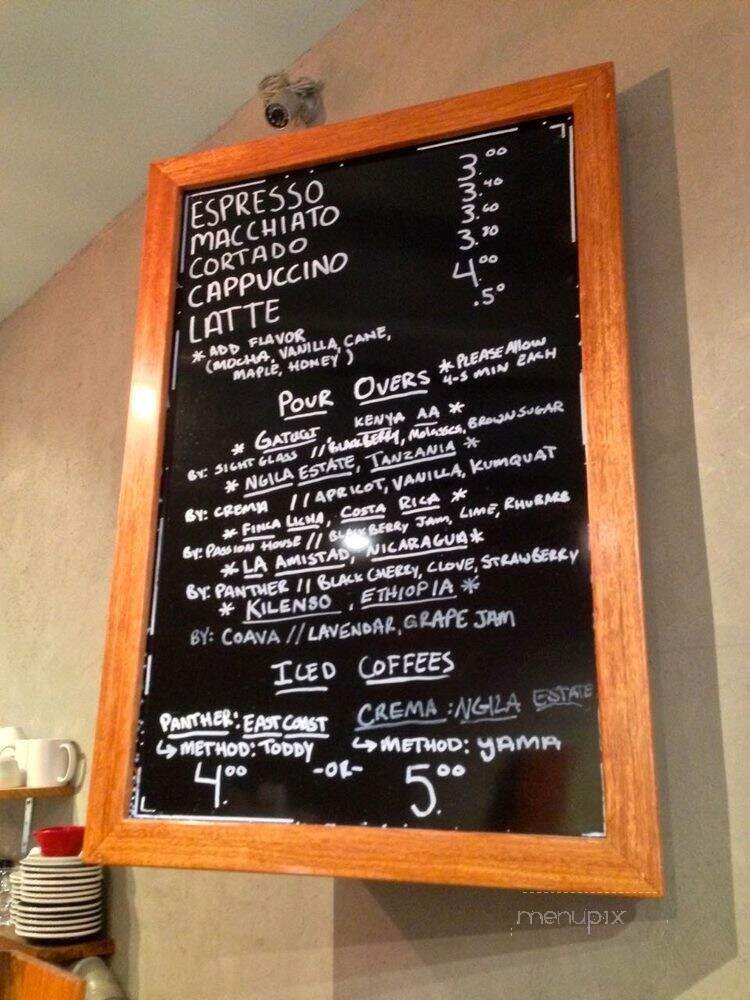 ESPRESSO 3.00
MACCHIATO 3.40
CORTADO 3.60
CAPPUCCINO 3.80
LATTE 4.00
* ADD FLAVOR .50
(MOCHA, VANILLA, CANE,
MAPLE, HONEY)
POUR OVERS * PLEASE ALLOW
4-5 MIN EACH
* GATUGI, KENYA AA *
BY: SIGHT GLASS // BLACKBERRY, MOLASSES, BROWN SUGAR
* NGILA ESTATE, TANZANIA *
BY: CREMA // APRICOT, VANILLA, KUMQUAT
* FINCA LICHA, COSTA RICA *
BY: PASSION HOUSE // BLACKBERRY JAM, LIME, RHUBARB
* LA AMISTAD, NICARAGUA *
BY: PANTHER // BLACK CHERRY, CLOVE, STRAWBERRY
* KILENSO, ETHIOPIA *
BY: COAVA // LAVENDAR, GRAPE JAM
ICED COFFEES
PANTHER: EAST COAST CREMA: NGILA ESTATE
↳ METHOD: TODDY ↳ METHOD: YAMA
4.00 -OR- 5.00
menupix